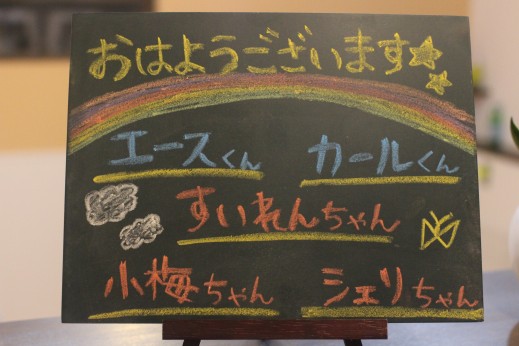 おはようございます
エースくん カールくん
すいれんちゃん
小梅ちゃん シェリちゃん